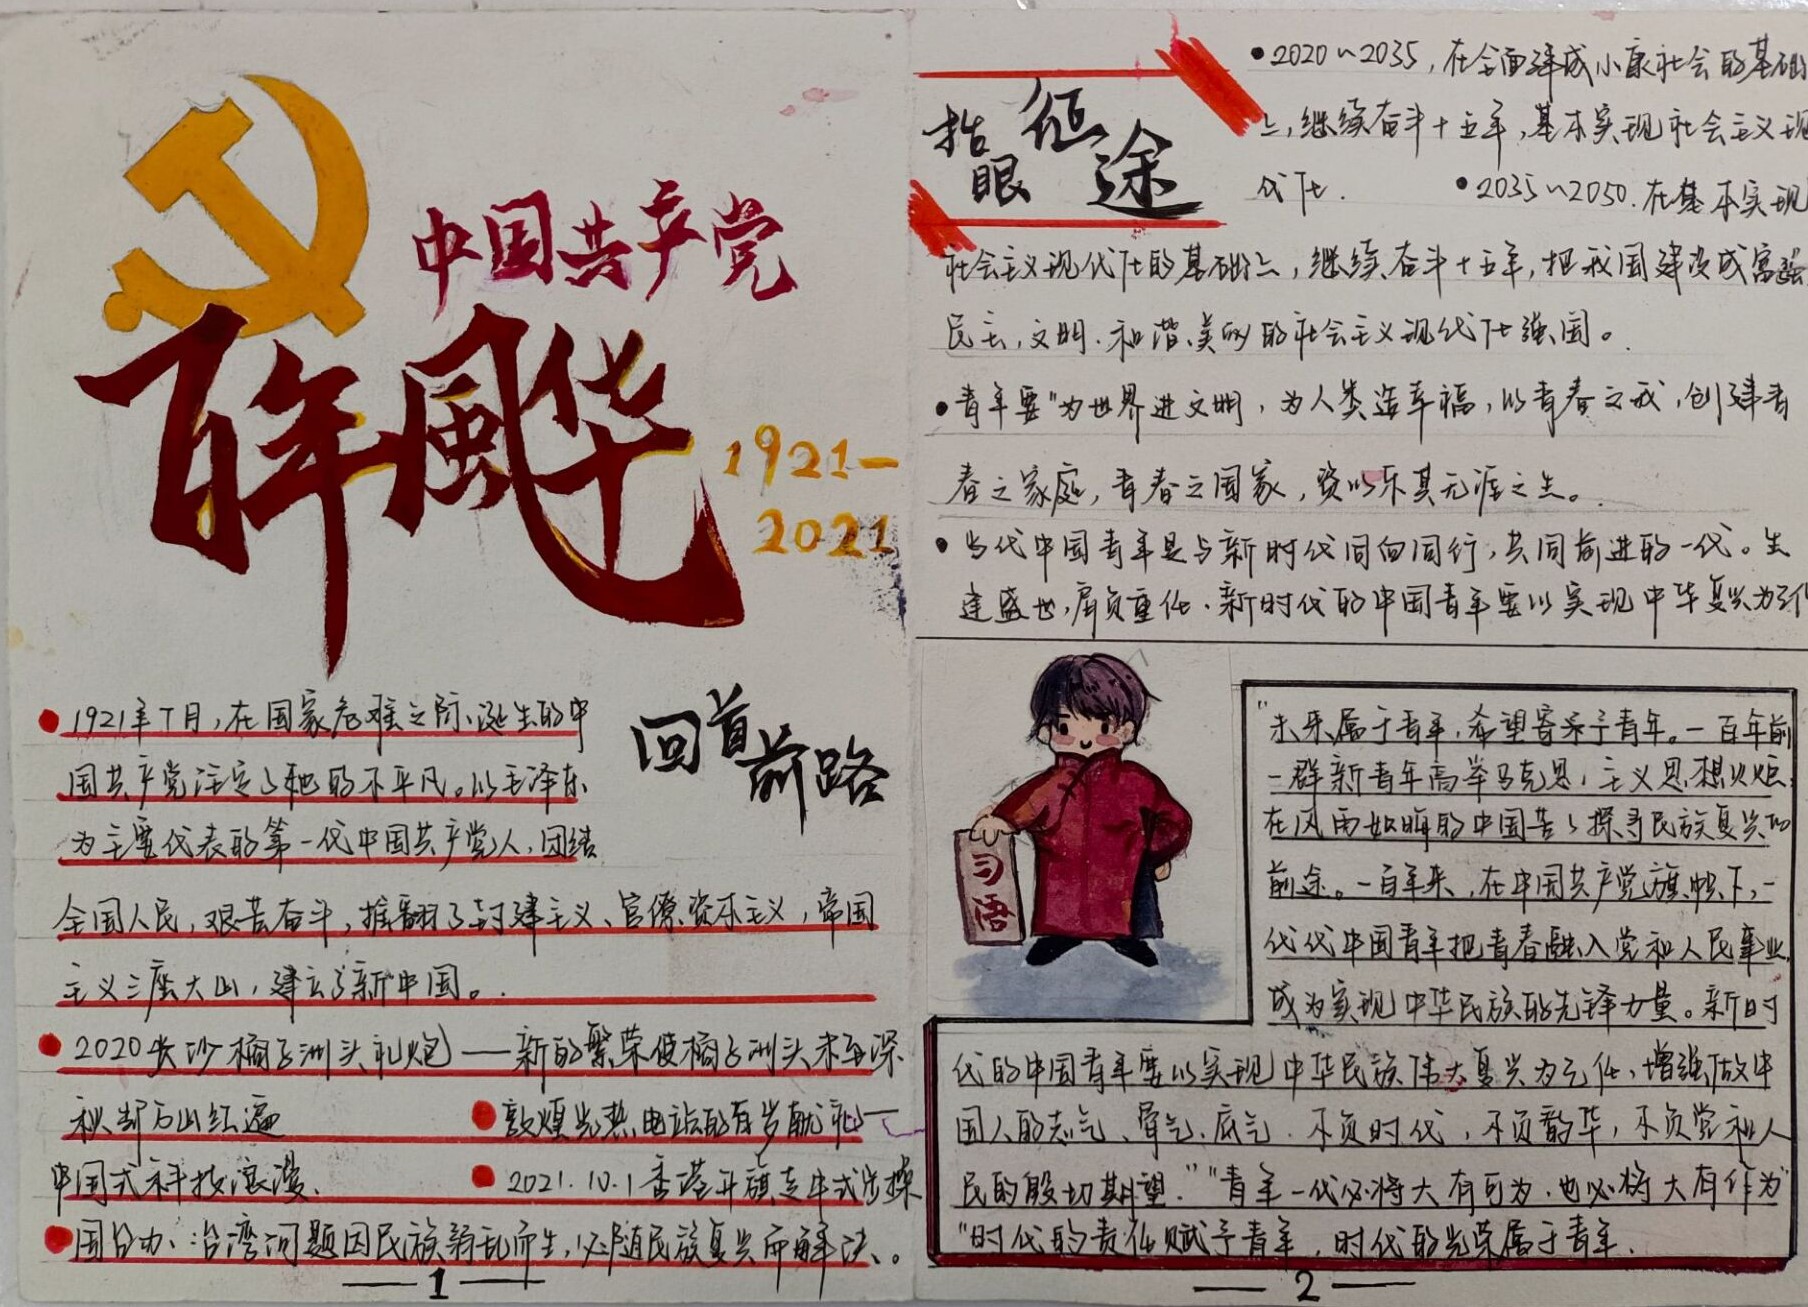 中国共产党
百年風华
1921-
2021
回首前路
1921年7月，在国家危难之际，诞生的中
国共产党注定了她的不平凡。以毛泽东
为主要代表的第一代中国共产党人，团结
全国人民，艰苦奋斗，推翻了封建主义、官僚资本主义，帝国
主义三座大山，建立了新中国。
2020长沙橘子洲头礼炮——新的繁荣使橘子洲头未至深
秋却万山红遍
敦煌光热电站的百岁献礼—
中国式科技浪漫、
2021.10.1香港升旗走中式步操
国台办：台湾问题因民族弱乱而生，必随民族复兴而解决。
1
指眼征途
2020~2035，在全面建成小康社会的基础
上，继续奋斗十五年，基本实现社会主义现
代化.
2035~2050.在基本实现
社会主义现代化的基础上，继续奋斗十五年，把我国建设成富强
民主、文明、和谐、美丽的社会主义现代化强国。
青年要"为世界进文明，为人类造幸福，以青春之我，创建青
春之家庭，青春之国家，资以乐其无涯之生。
当代中国青年是与新时代同向同行，共同前进的一代。生
逢盛世，肩负重任.新时代的中国青年要以实现中华复兴为
习语
"未来属于青年，希望寄予青年。一百年前
一群新青年高举马克思，主义思想火炬，
在风雨如晦的中国苦苦探寻民族复兴的
前途。一百年来，在中国共产党旗帜下，一
代代中国青年把青春融入党和人民事业，
成为实现中华民族的先锋力量。新时
代的中国青年要以实现中华民族伟大复兴为己任，增强做中
国人的志气、骨气、底气.不负时代，不负韶华，不负党和人
民的殷切期望."
"青年一代必将大有可为.也必将大有作为"
"时代的责任赋予青年，时代的光荣属于青年.
2